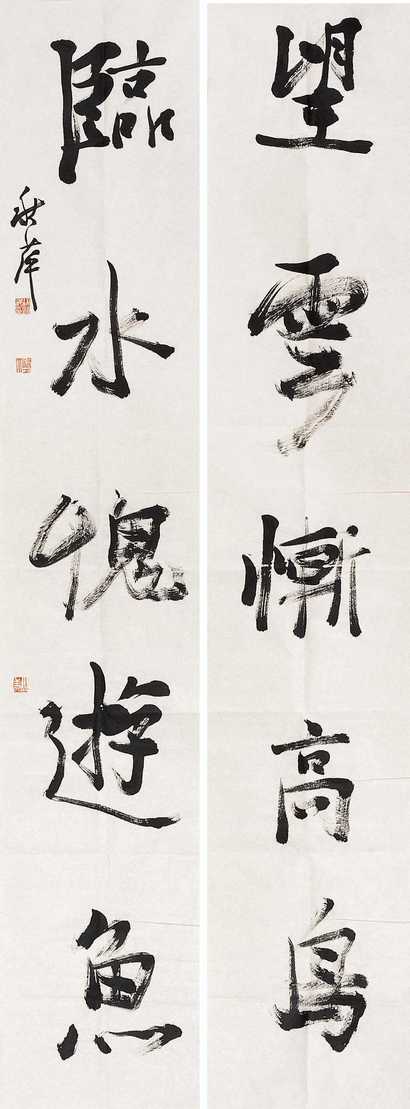 望雲慚高鳥
臨水愧遊魚